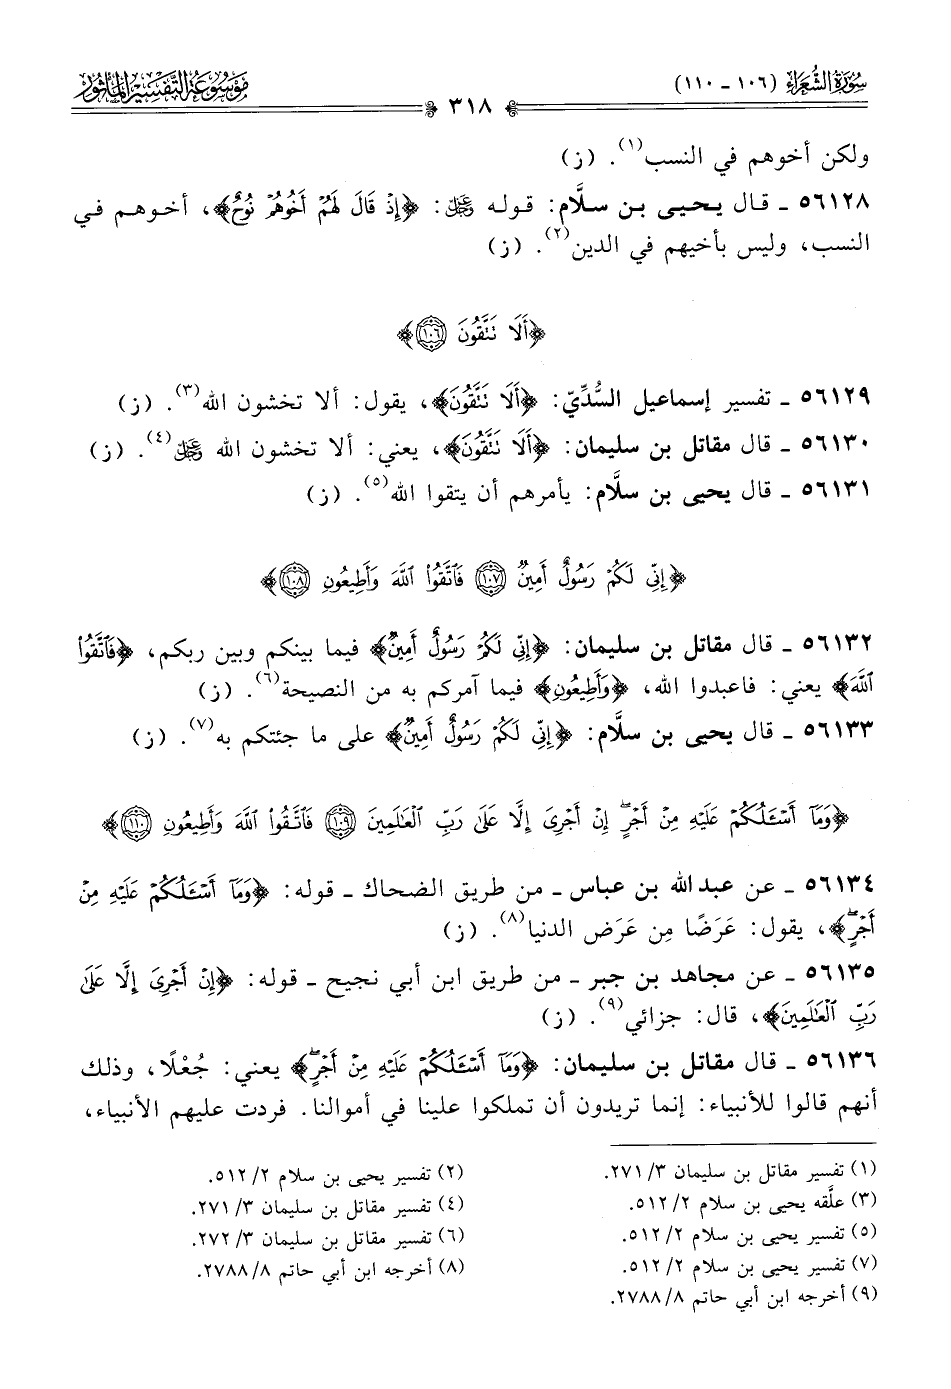 سُورَةُ الشُّعَرَاءِ (١٠٦ - ١١٠)
٣١٨
مَوْسُوعَةُ التَّفْسِيرِ المَأْثُورِ
ولكن أخوهم في النسب(١). (ز)
٥٦١٢٨ ـ قال يحيى بن سلَّام: قوله ﷿: ﴿إِذْ قَالَ لَهُمْ أَخُوهُمْ نُوحٌ﴾، أخوهم في
النسب، وليس بأخيهم في الدين(٢). (ز)
﴿أَلَا تَتَّقُونَ ١٠٦﴾
٥٦١٢٩ ـ تفسير إسماعيل السُّدِّيّ: ﴿أَلَا تَتَّقُونَ﴾، يقول: ألا تخشون الله(٣). (ز)
٥٦١٣٠ ـ قال مقاتل بن سليمان: ﴿أَلَا تَتَّقُونَ﴾، يعني: ألا تخشون الله ﷿(٤). (ز)
٥٦١٣١ ـ قال يحيى بن سلَّام: يأمرهم أن يتقوا الله(٥). (ز)
﴿إِنِّي لَكُمْ رَسُولٌ أَمِينٌ ١٠٧ فَاتَّقُوا۟ ٱللَّهَ وَأَطِيعُونِ ١٠٨﴾
٥٦١٣٢ ـ قال مقاتل بن سليمان: ﴿إِنِّي لَكُمْ رَسُولٌ أَمِينٌ﴾ فيما بينكم وبين ربكم، ﴿فَٱتَّقُوا۟
ٱللَّهَ﴾ يعني: فاعبدوا الله، ﴿وَأَطِيعُونِ﴾ فيما آمركم به من النصيحة(٦). (ز)
٥٦١٣٣ ـ قال يحيى بن سلَّام: ﴿إِنِّي لَكُمْ رَسُولٌ أَمِينٌ﴾ على ما جئتكم به(٧). (ز)
﴿وَمَآ أَسْـَٔلُكُمْ عَلَيْهِ مِنْ أَجْرٍ ۖ إِنْ أَجْرِىَ إِلَّا عَلَىٰ رَبِّ ٱلْعَـٰلَمِينَ ١٠٩ فَٱتَّقُوا۟ ٱللَّهَ وَأَطِيعُونِ ١١٠﴾
٥٦١٣٤ ـ عن عبد الله بن عباس ـ من طريق الضحاك ـ قوله: ﴿وَمَآ أَسْـَٔلُكُمْ عَلَيْهِ مِنْ
أَجْرٍ ۖ﴾، يقول: عَرَضًا مِن عَرَض الدنيا(٨). (ز)
٥٦١٣٥ ـ عن مجاهد بن جبر ـ من طريق ابن أبي نجيح ـ قوله: ﴿إِنْ أَجْرِىَ إِلَّا عَلَىٰ
رَبِّ ٱلْعَـٰلَمِينَ﴾، قال: جزائي(٩). (ز)
٥٦١٣٦ ـ قال مقاتل بن سليمان: ﴿وَمَآ أَسْـَٔلُكُمْ عَلَيْهِ مِنْ أَجْرٍ ۖ﴾ يعني: جُعْلًا، وذلك
أنهم قالوا للأنبياء: إنما تريدون أن تملكوا علينا في أموالنا. فردت عليهم الأنبياء،
(١) تفسير مقاتل بن سليمان ٣/ ٢٧١.
(٢) تفسير يحيى بن سلام ٢/ ٥١٢.
(٣) علَّقه يحيى بن سلام ٢/ ٥١٢.
(٤) تفسير مقاتل بن سليمان ٣/ ٢٧١.
(٥) تفسير يحيى بن سلام ٢/ ٥١٢.
(٦) تفسير مقاتل بن سليمان ٣/ ٢٧٢.
(٧) تفسير يحيى بن سلام ٢/ ٥١٢.
(٨) أخرجه ابن أبي حاتم ٨/ ٢٧٨٨.
(٩) أخرجه ابن أبي حاتم ٨/ ٢٧٨٨.